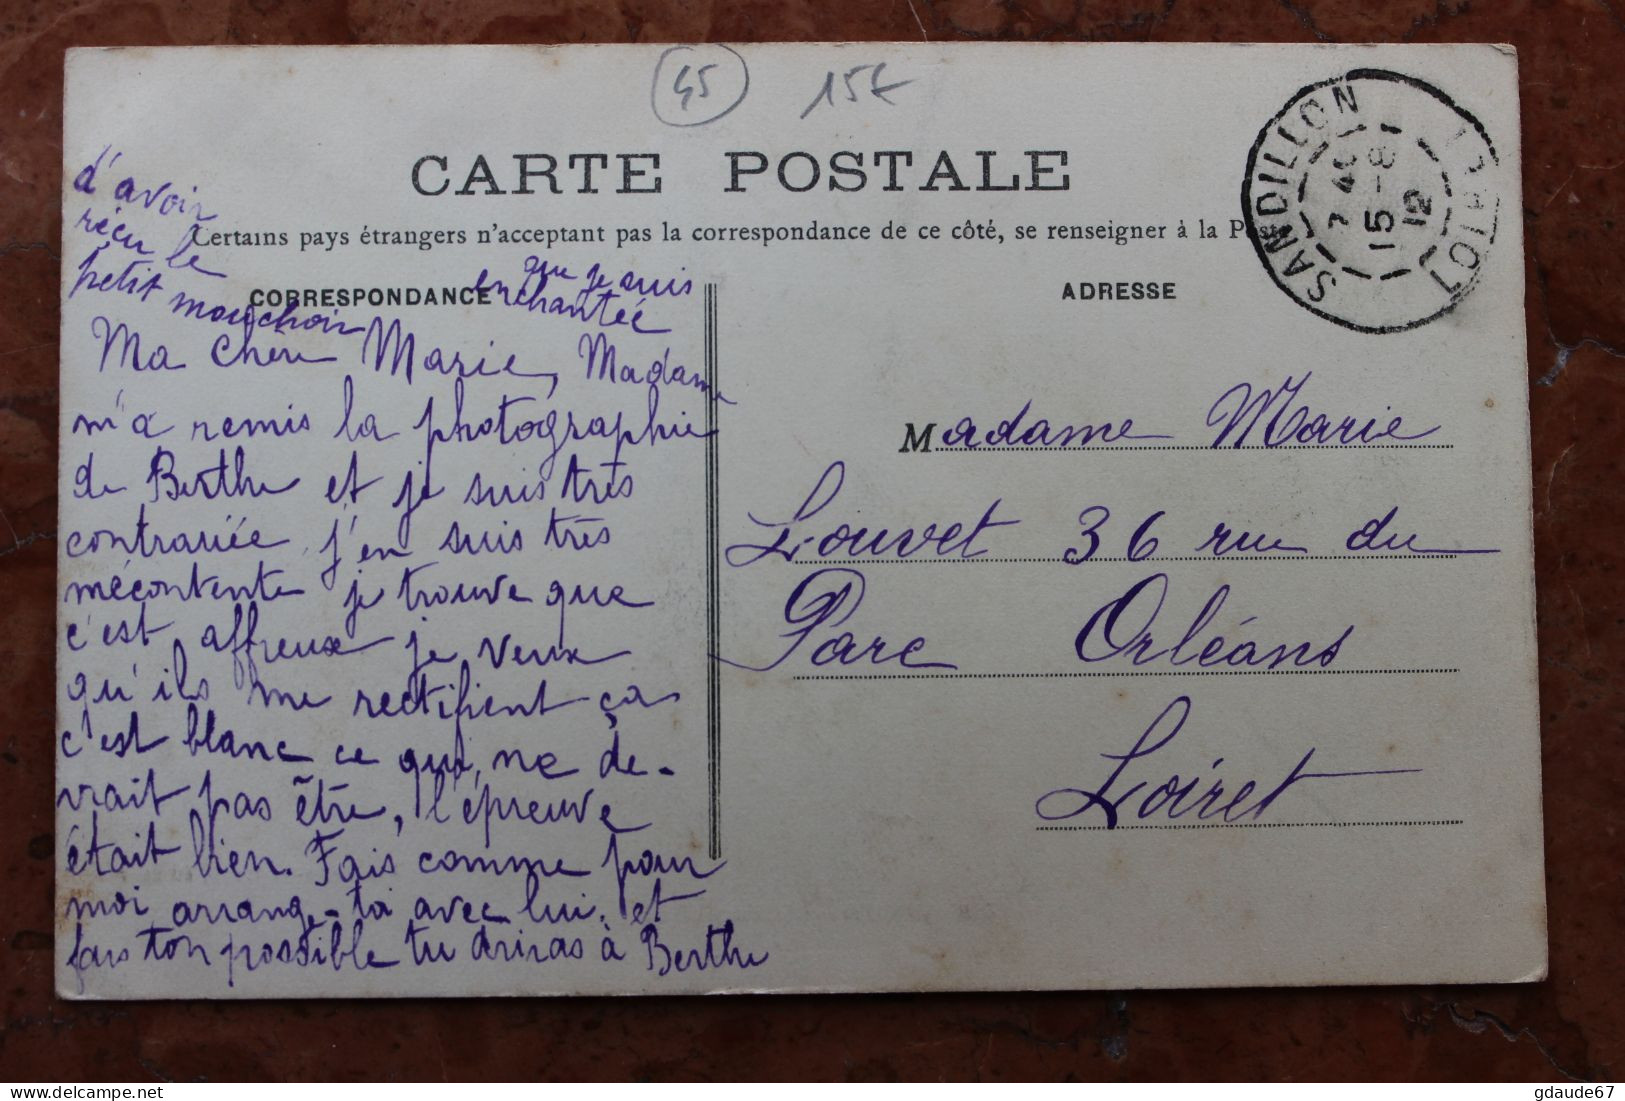 45 15€
CARTE POSTALE
Certains pays étrangers n'acceptent pas la correspondance de ce côté, se renseigner à la Poste
CORRESPONDANCE
ADRESSE
SANDILLON LOIRET
7 40
15 - 8
12
Ma chère Marie, Madame
m'a remis la photographie
de Berthe et je suis très
contrariée, j'en suis très
mécontente je trouve que
c'est affreux je veux
qu'ils me rectifient ça
c'est blanc ce qui ne de-
vrait pas être, l'épreuve
était bien. Fais comme pour
moi arrange-toi avec lui, et
fais ton possible tu diras à Berthe
que je suis
enchantée
d'avoir
reçu le
petit mouchoir
Madame Marie
Louvet 36 rue du
Parc Orléans
Loiret
gdaude67